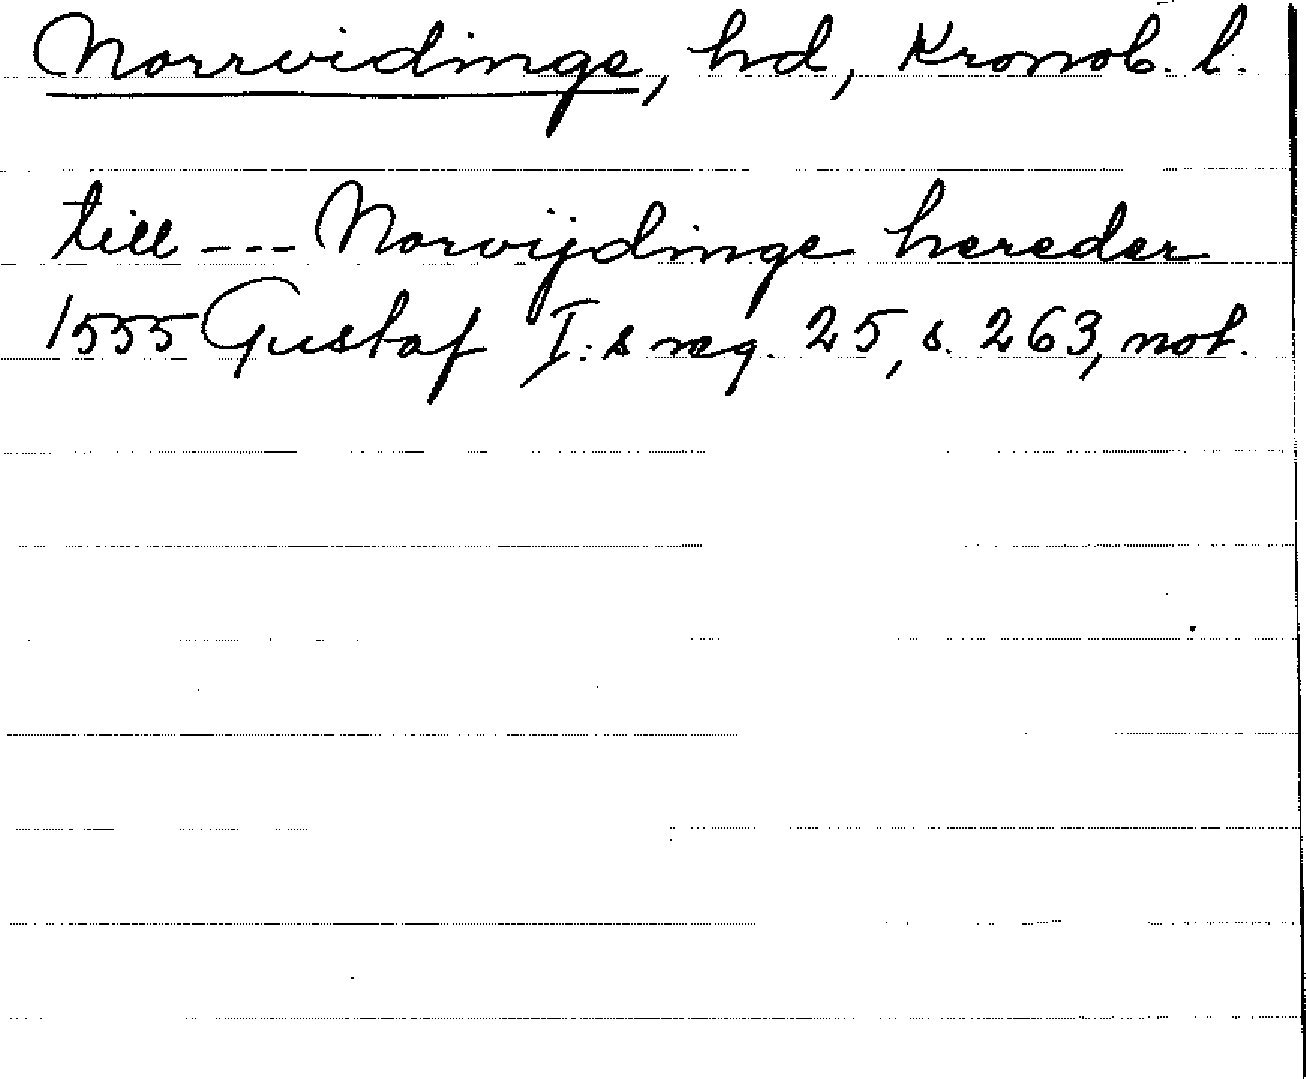 Norrvidinge, hd, Kronob. l.
till --- Norvijdinge hereder
1555 Gustaf I:s reg. 25, s. 263, not.